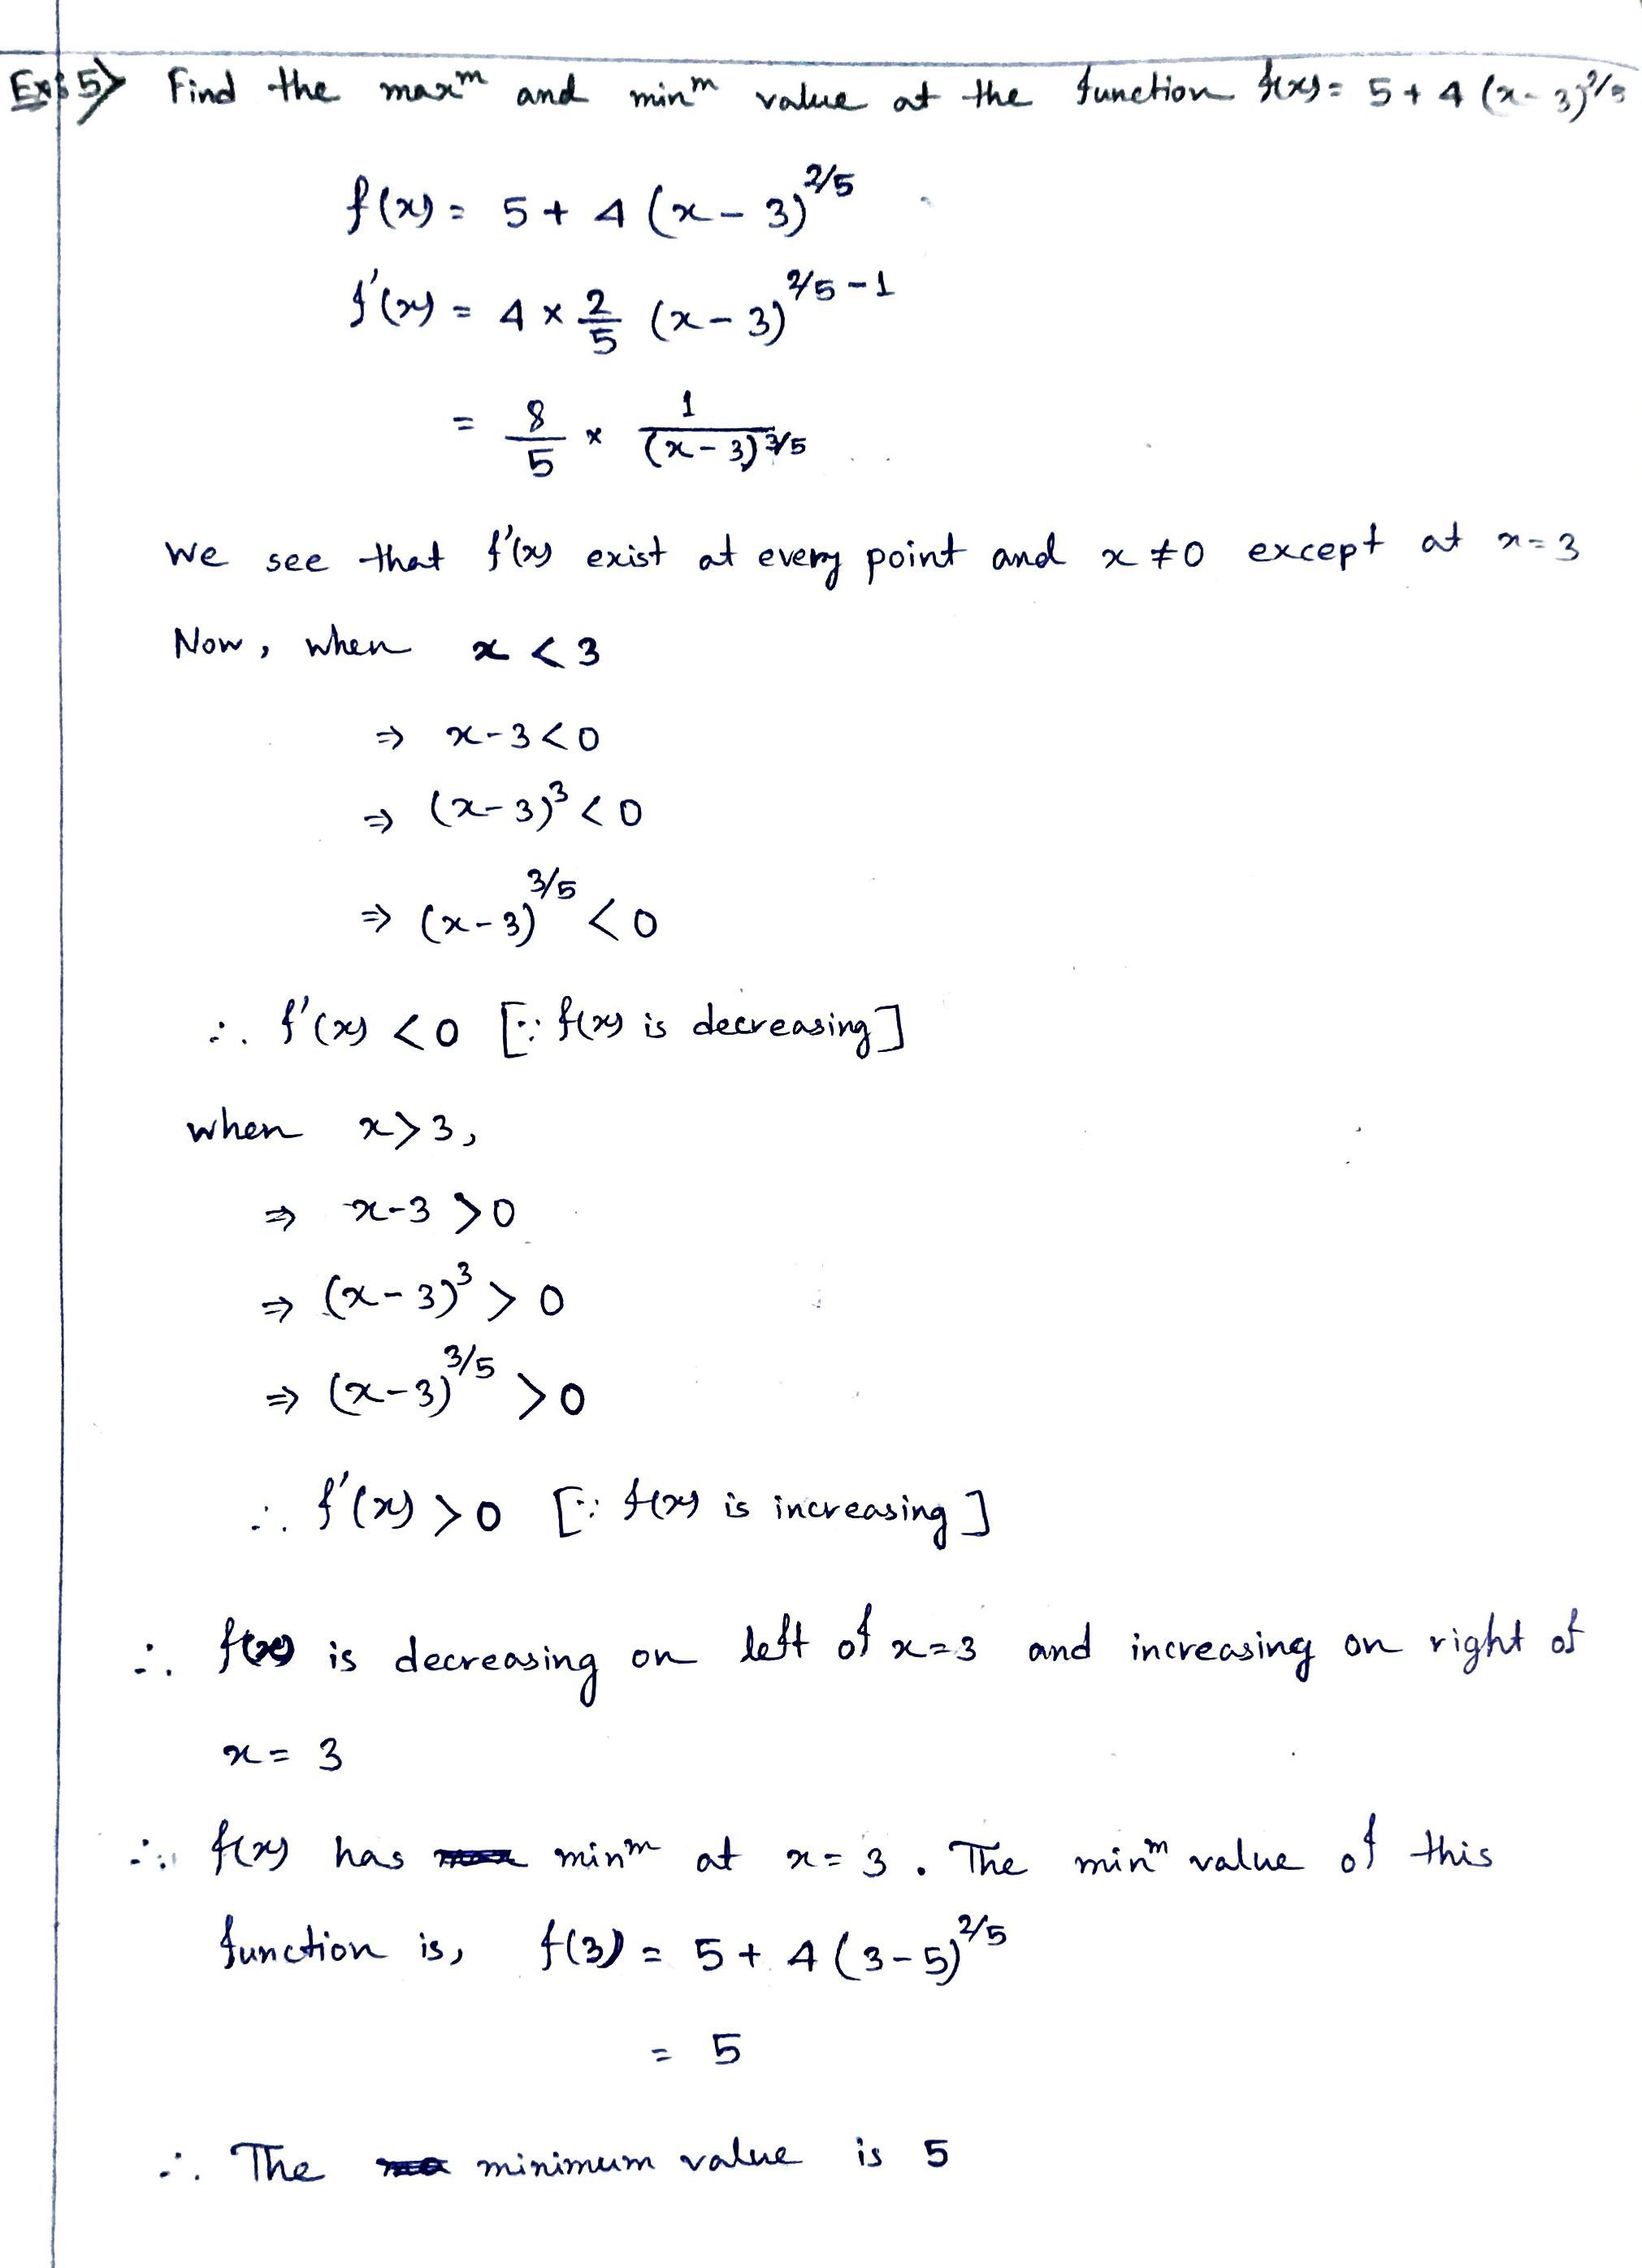 Ex: 5) Find the maxᵐ and minᵐ value at the function f(x) = 5 + 4 (x - 3)^2/5
f(x) = 5 + 4 (x - 3)^2/5
f'(x) = 4 × 2/5 (x - 3)^2/5 - 1
= 8/5 × 1/(x - 3)^3/5
We see that f'(x) exist at every point and x ≠ 0 except at x = 3
Now, when x < 3
⇒ x - 3 < 0
⇒ (x - 3)^3 < 0
⇒ (x - 3)^3/5 < 0
∴ f'(x) < 0 [∵ f(x) is decreasing]
when x > 3,
⇒ x - 3 > 0
⇒ (x - 3)^3 > 0
⇒ (x - 3)^3/5 > 0
∴ f'(x) > 0 [∵ f(x) is increasing]
∴ f(x) is decreasing on left of x = 3 and increasing on right of
x = 3
∴ f(x) has minᵐ at x = 3. The minᵐ value of this
function is, f(3) = 5 + 4 (3 - 5)^2/5
= 5
∴ The minimum value is 5